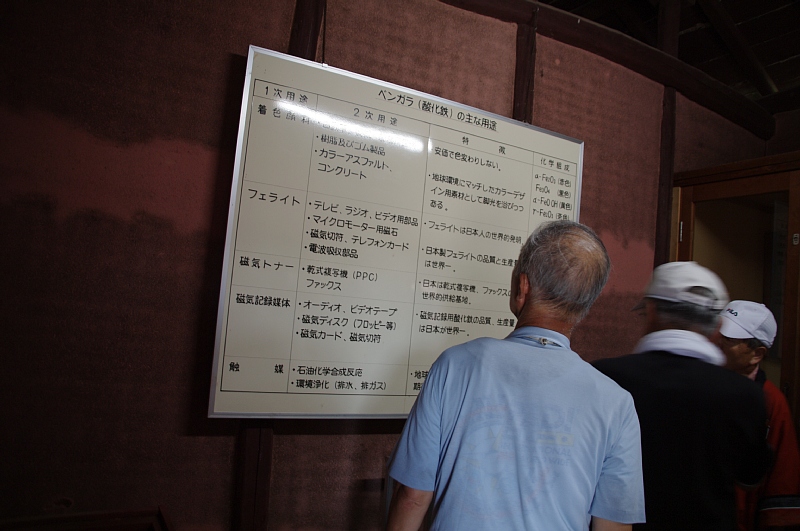 ベンガラ(酸化鉄)の主な用途
1次用途
2次用途
特 徴
化学組成
着色顔料
・樹脂及びゴム製品
・カラーアスファルト、
コンクリート
・安価で色変わりしない。
・地球環境にマッチしたカラーデザ
イン用素材として脚光を浴びつつ
ある。
α-Fe₂O₃(赤色)
Fe₃O₄ (黒色)
α-FeOOH(黄色)
γ-Fe₂O₃(茶色)
フェライト
・テレビ、ラジオ、ビデオ用部品
・マイクロモーター用磁石
・磁気切符、テレフォンカード
・電波吸収部品
・フェライトは日本人の世界的発明
・日本製フェライトの品質と生産量
は世界一。
磁気トナー
・乾式複写機(PPC)
ファックス
・日本は乾式複写機、ファックスの
世界的供給基地。
磁気記録媒体
・オーディオ、ビデオテープ
・磁気ディスク(フロッピー等)
・磁気カード、磁気切符
・磁気記録用酸化鉄の品質、生産量
は日本が世界一。
触 媒
・石油化学合成反応
・環境浄化(排水、排ガス)
・地球
期
FILA